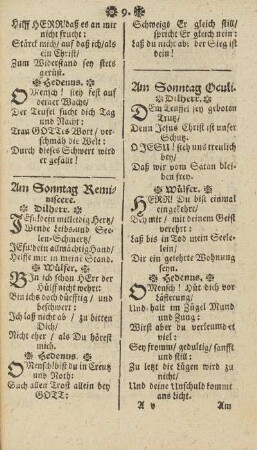 9.
Hilff HERR! daß es an mir
nicht frucht:
Stärck mich/ auf daß ich/ als
ein Christ/
Zum Widerstand stey stets
gerüst.
Hedenus.
O Mensch! stey fest auf
deiner Wacht/
Der Teufel sucht dich Tag
und Nacht:
Trau GOTTes Wort/ ver-
schmäh die Welt:
Durch dieses Schwert wird
er gefällt!
Am Sonntag Remi-
niscere.
Dilherr.
JEsu! dein mitleidig Hertz/
Wende Leibs- und See-
len-Schmertz/
JEsu! dein allmächtig Hand/
Helffe mir in meine Stand.
Wülfer.
Bin ich schon HErr der
Hülff nicht wehrt:
Bin ichs doch dürfftig/ und
beschwert:
Ich laß nicht ab/ zu bitten
Dich/
Nicht eher/ als Du hörest
mich.
Hedenus.
O Mensch! bist du in Creutz
und Noth:
Such allen Trost allein bey
GOTT:
Schweigt Er gleich still/
spricht Er gleich nein:
daß du nicht ab: der Sieg ist
dein!
Am Sonntag Oculi.
Dilherr.
Dem Teuffel sey geboten
Trutz/
Denn Jesus Christ ist unser
Schutz.
O JESU! stey uns treulich
bey/
Daß wir vom Satan blei-
ben frey.
Wülfer.
HERR! Du bist einmal
eingekehrt/
Bey mir/ mit deinem Geist
verehrt:
laß bis in Tod mein Seele-
lein/
Dir ein geehrte Wohnung
seyn.
Hedenus.
O Mensch! Hür dich vor
Lästerung/
Und halt im Zügel Mund
und Zung:
Wirst aber du verleumdet
viel:
Sey fromm/ gedultig/ sanfft
und still:
Zu letzt die Lügen wird zu
nicht/
Und deine Unschuld kommt
ans Licht.
A v
Am